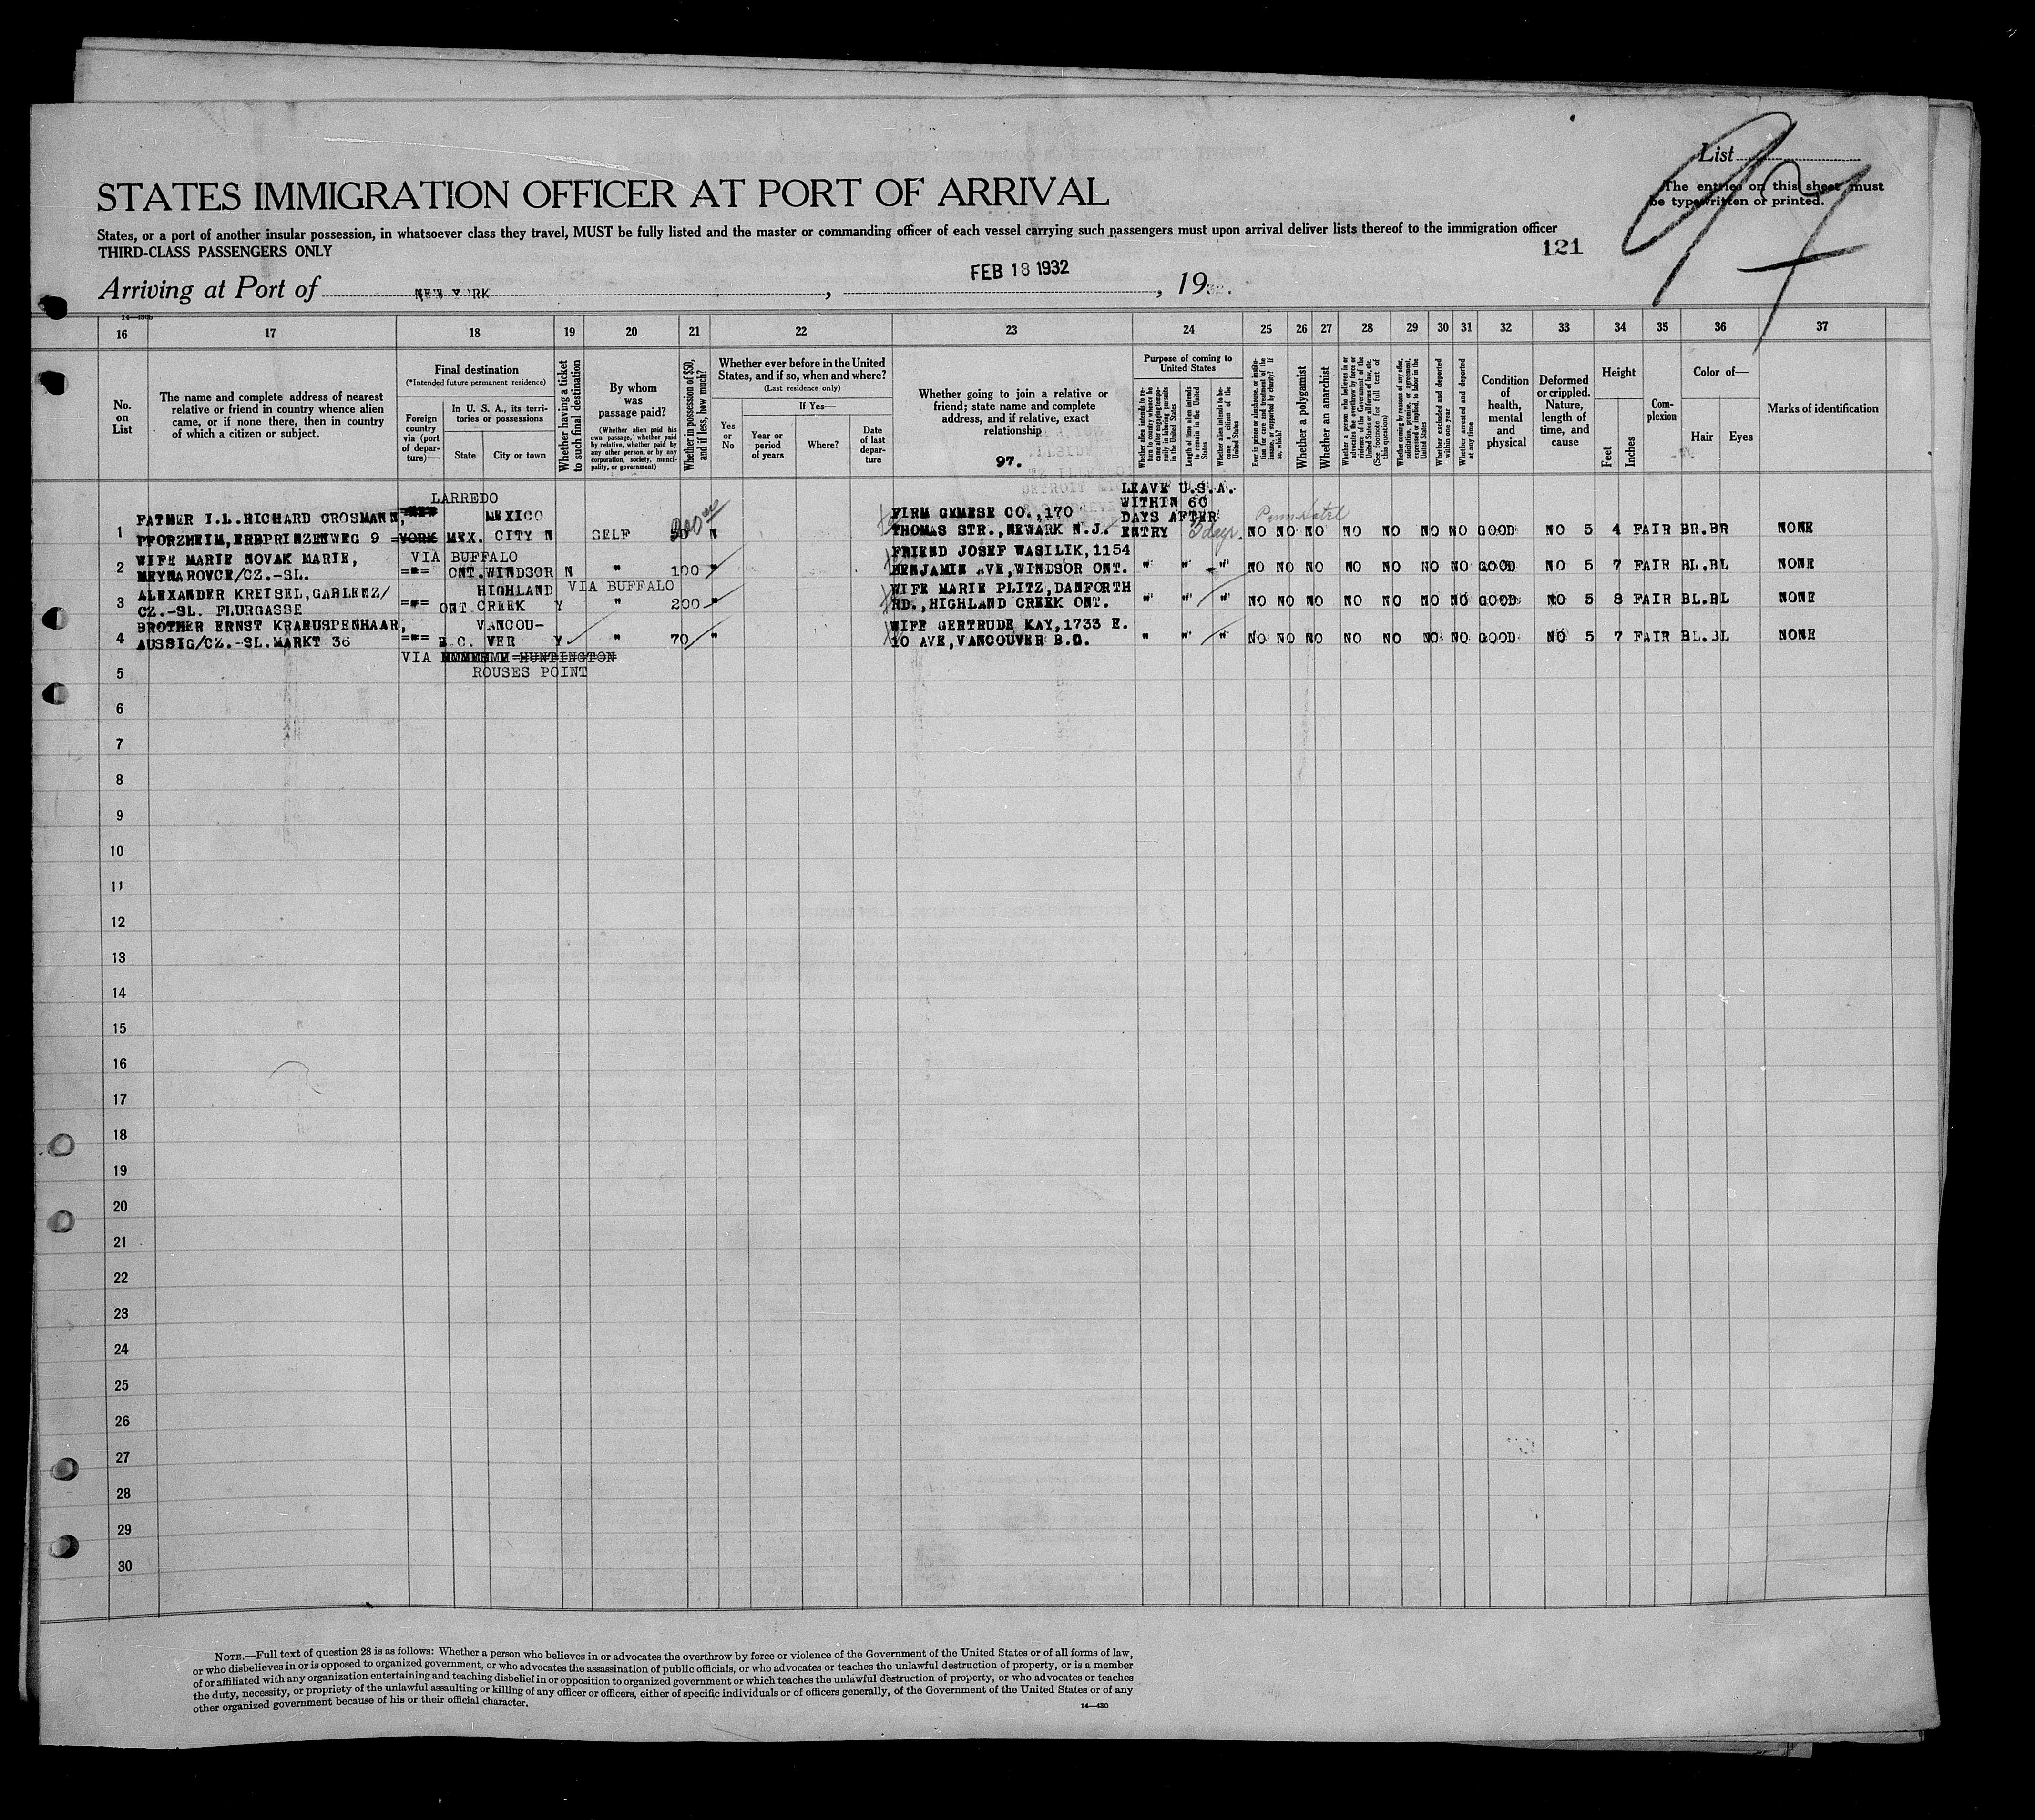 List
The entries on this sheet must
be typewritten or printed.
STATES IMMIGRATION OFFICER AT PORT OF ARRIVAL
States, or a port of another insular possession, in whatsoever class they travel, MUST be fully listed and the master or commanding officer of each vessel carrying such passengers must upon arrival deliver lists thereof to the immigration officer
THIRD-CLASS PASSENGERS ONLY
121
97
Arriving at Port of NEW YORK, FEB 18 1932, 1932.
14—430b
16 17 18 19 20 21 22 23 24 25 26 27 28 29 30 31 32 33 34 35 36 37
No. on List
The name and complete address of nearest
relative or friend in country whence alien
came, or if none there, then in country
of which a citizen or subject.
Final destination
(*Intended future permanent residence)
Foreign country via (port of departure)—
In U. S. A., its territories or possessions
State
City or town
Whether having a ticket to such final destination
By whom was passage paid?
(Whether alien paid his own passage, whether paid by relative, whether paid by any other person, or by any corporation, society, municipality, or government)
Whether in possession of $50, and if less, how much?
Whether ever before in the United States, and if so, when and where?
(Last residence only)
Yes or No
If Yes—
Year or period of years
Where?
Date of last departure
Whether going to join a relative or
friend; state name and complete
address, and if relative, exact
relationship
97.
Purpose of coming to United States
Whether alien intends to return to country whence he came after engaging temporarily in laboring pursuits in the United States
Length of time alien intends to remain in the United States
Whether alien intends to become a citizen of the United States
Ever in prison or almshouse, or institution for care and treatment of the insane, or supported by charity? If so, which?
Whether a polygamist
Whether an anarchist
Whether a person who believes in or advocates the overthrow by force or violence of the Government of the United States or all forms of law, etc. (See footnote for full text of this question)
Whether coming by reasons of any offer, solicitation, promise, or agreement, expressed or implied, to labor in the United States
Whether excluded and deported within one year
Whether arrested and deported at any time
Condition of health, mental and physical
Deformed or crippled. Nature, length of time, and cause
Height
Feet
Inches
Complexion
Color of—
Hair
Eyes
Marks of identification
LARREDO
LEAVE U.S.A.
WITHIN 60
FATHER I.L.RICHARD GROSMANN, MEXICO 200 FIRM GEMESE CO., 170 DAYS AFTER
1 PFORZHEIM, ERBPRINZENWEG 9 =YORK MEX. CITY N SELF 50 N THOMAS STR., NEWARK N.J. ENTRY 3 days. NO NO NO NO NO NO NO GOOD NO 5 4 FAIR BR.BR NONE
WIFE MARIE NOVAK MARIE, VIA BUFFALO FRIEND JOSEF WASILIK, 1154
2 MEYNAROVCE/CZ.-SL. ="= ONT. WINDSOR N " 100 " BENJAMIN AVE, WINDSOR ONT. " " " NO NO NO NO NO NO NO GOOD NO 5 7 FAIR BL.BL NONE
ALEXANDER KREISEL, GABLENZ/ HIGHLAND VIA BUFFALO WIFE MARIE PLITZ, DANFORTH
3 CZ.-SL. FLURGASSE ="= ONT. CREEK Y " 200 " RD., HIGHLAND CREEK ONT. " " NO NO NO NO NO NO NO GOOD NO 5 8 FAIR BL.BL NONE
BROTHER ERNST KRABUSPENHAAR, VANCOU- WIFE GERTRUDE KAY, 1733 E.
4 AUSSIG/CZ.-SL. MARKT 36 ="= B.C. VER Y " 70 " 10 AVE, VANCOUVER B.C. " " NO NO NO NO NO NO NO GOOD NO 5 7 FAIR BL.BL NONE
VIA HUNTINGTON
5 ROUSES POINT
6
7
8
9
10
11
12
13
14
15
16
17
18
19
20
21
22
23
24
25
26
27
28
29
30
NOTE.—Full text of question 28 is as follows: Whether a person who believes in or advocates the overthrow by force or violence of the Government of the United States or of all forms of law,
or who disbelieves in or is opposed to organized government, or who advocates the assassination of public officials, or who advocates or teaches the unlawful destruction of property, or is a member
of or affiliated with any organization entertaining and teaching disbelief in or opposition to organized government or which teaches the unlawful destruction of property, or who advocates or teaches
the duty, necessity, or propriety of the unlawful assaulting or killing of any officer or officers, either of specific individuals or of officers generally, of the Government of the United States or of any
other organized government because of his or their official character.
14—430